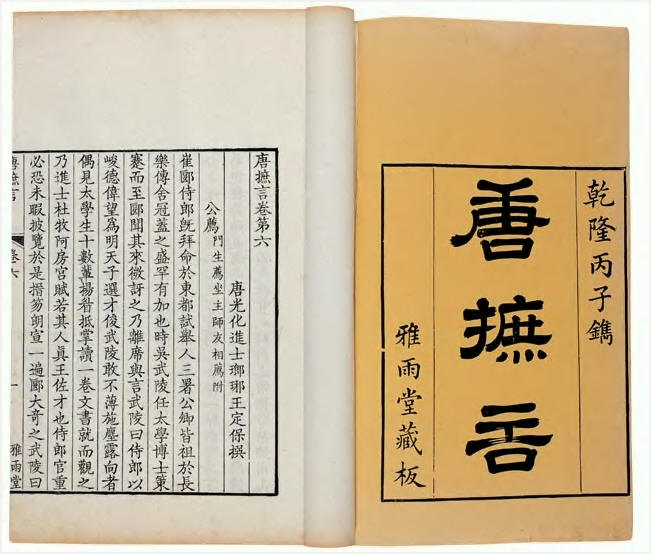 乾隆丙子鐫
唐摭言
雅雨堂藏板
唐摭言卷第六
唐光化進士瑯琊王定保撰
公薦 門生薦坐主師友相薦附
崔郾侍郎旣拜命於東都試舉人三署公卿皆祖於長
樂傳舍冠蓋之盛罕有加也時吳武陵任太學博士策
蹇而至郾聞其來微訝之乃離席與言武陵曰侍郎以
峻德偉望爲明天子選才俊武陵敢不薄施塵露向者
偶見太學生十數輩揚睂抵掌讀一卷文書就而觀之
乃進士杜牧阿房宮賦若其人眞王佐才也侍郎官重
必恐未暇披覽於是搢笏朗宣一遍郾大奇之武陵曰
唐摭言 卷六 一 雅雨堂